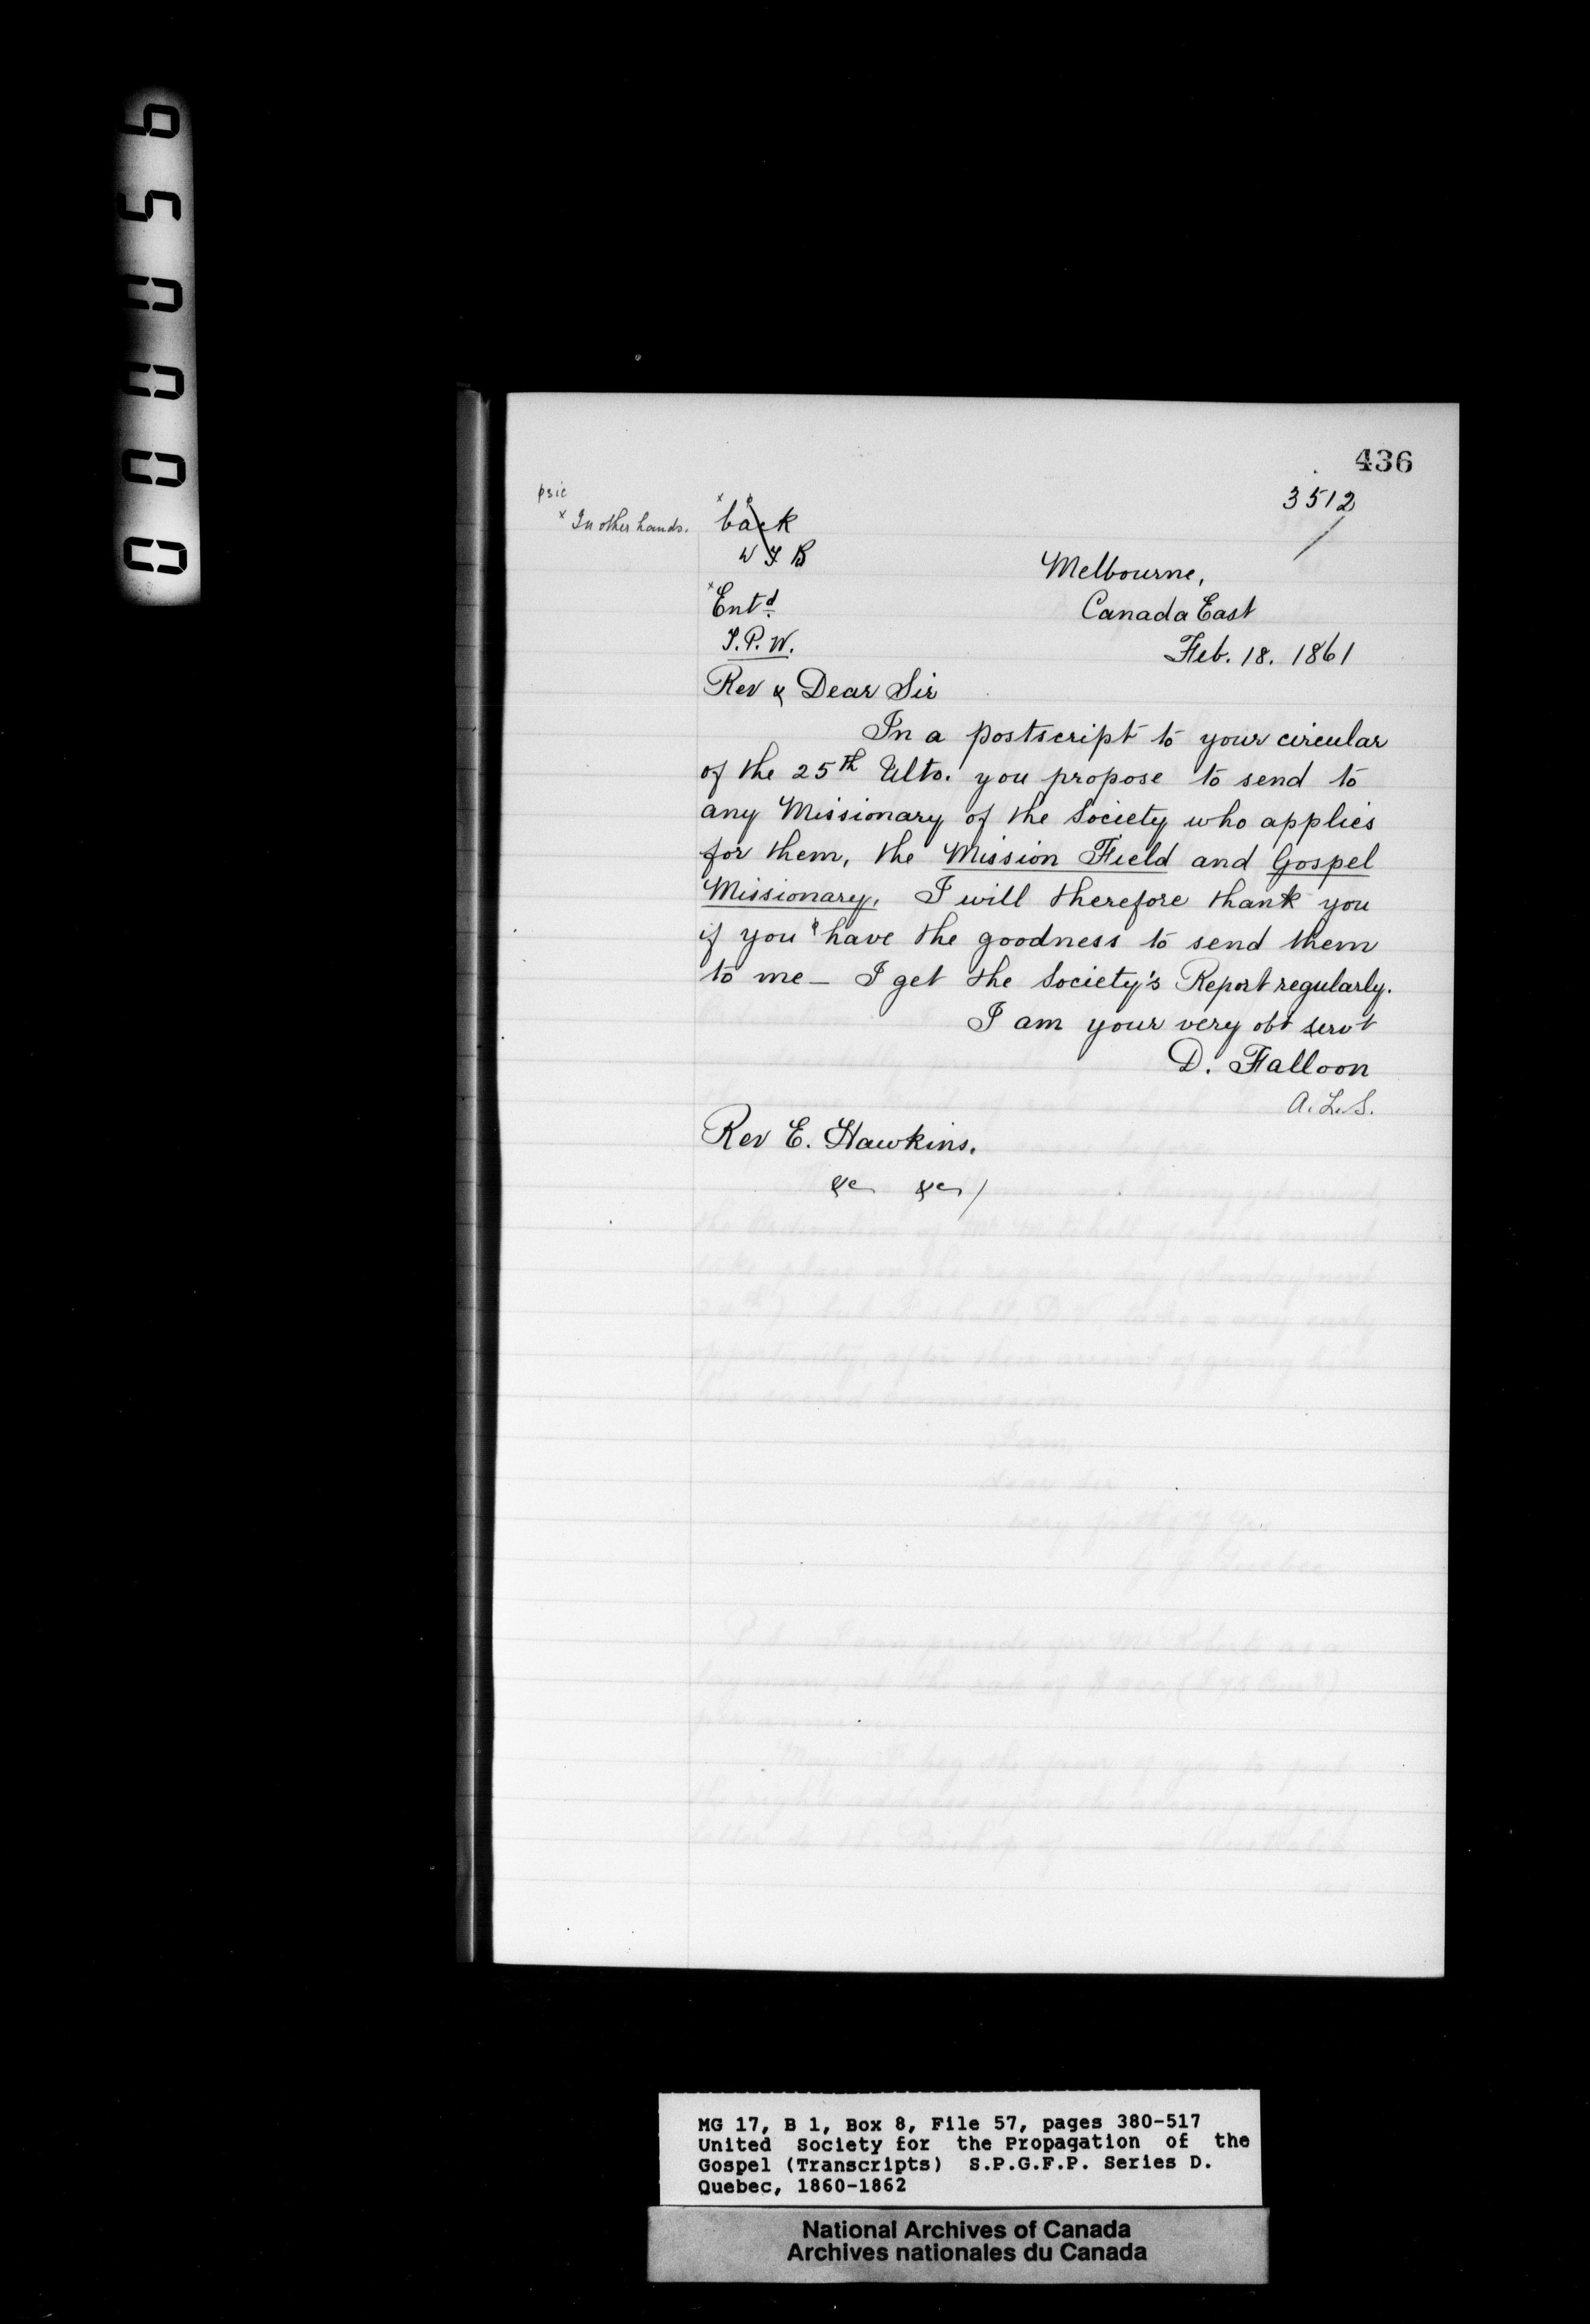 000056
436
psic
x In other hands.
x p back
3512
W F B
Melbourne,
x Entd
Canada East
T.P.W.
Feb. 18. 1861
Rev & Dear Sir
In a postscript to your circular
of the 25th Ulto. you propose to send to
any Missionary of the Society who applies
for them, the Mission Field and Gospel
Missionary. I will therefore thank you
if you p have the goodness to send them
to me – I get the Society's Report regularly.
I am your very obt servt
D. Falloon
A.L.S.
Rev E. Hawkins.
&c &c /
MG 17, B 1, Box 8, File 57, pages 380-517
United Society for the Propagation of the
Gospel (Transcripts) S.P.G.F.P. Series D.
Quebec, 1860-1862
National Archives of Canada
Archives nationales du Canada